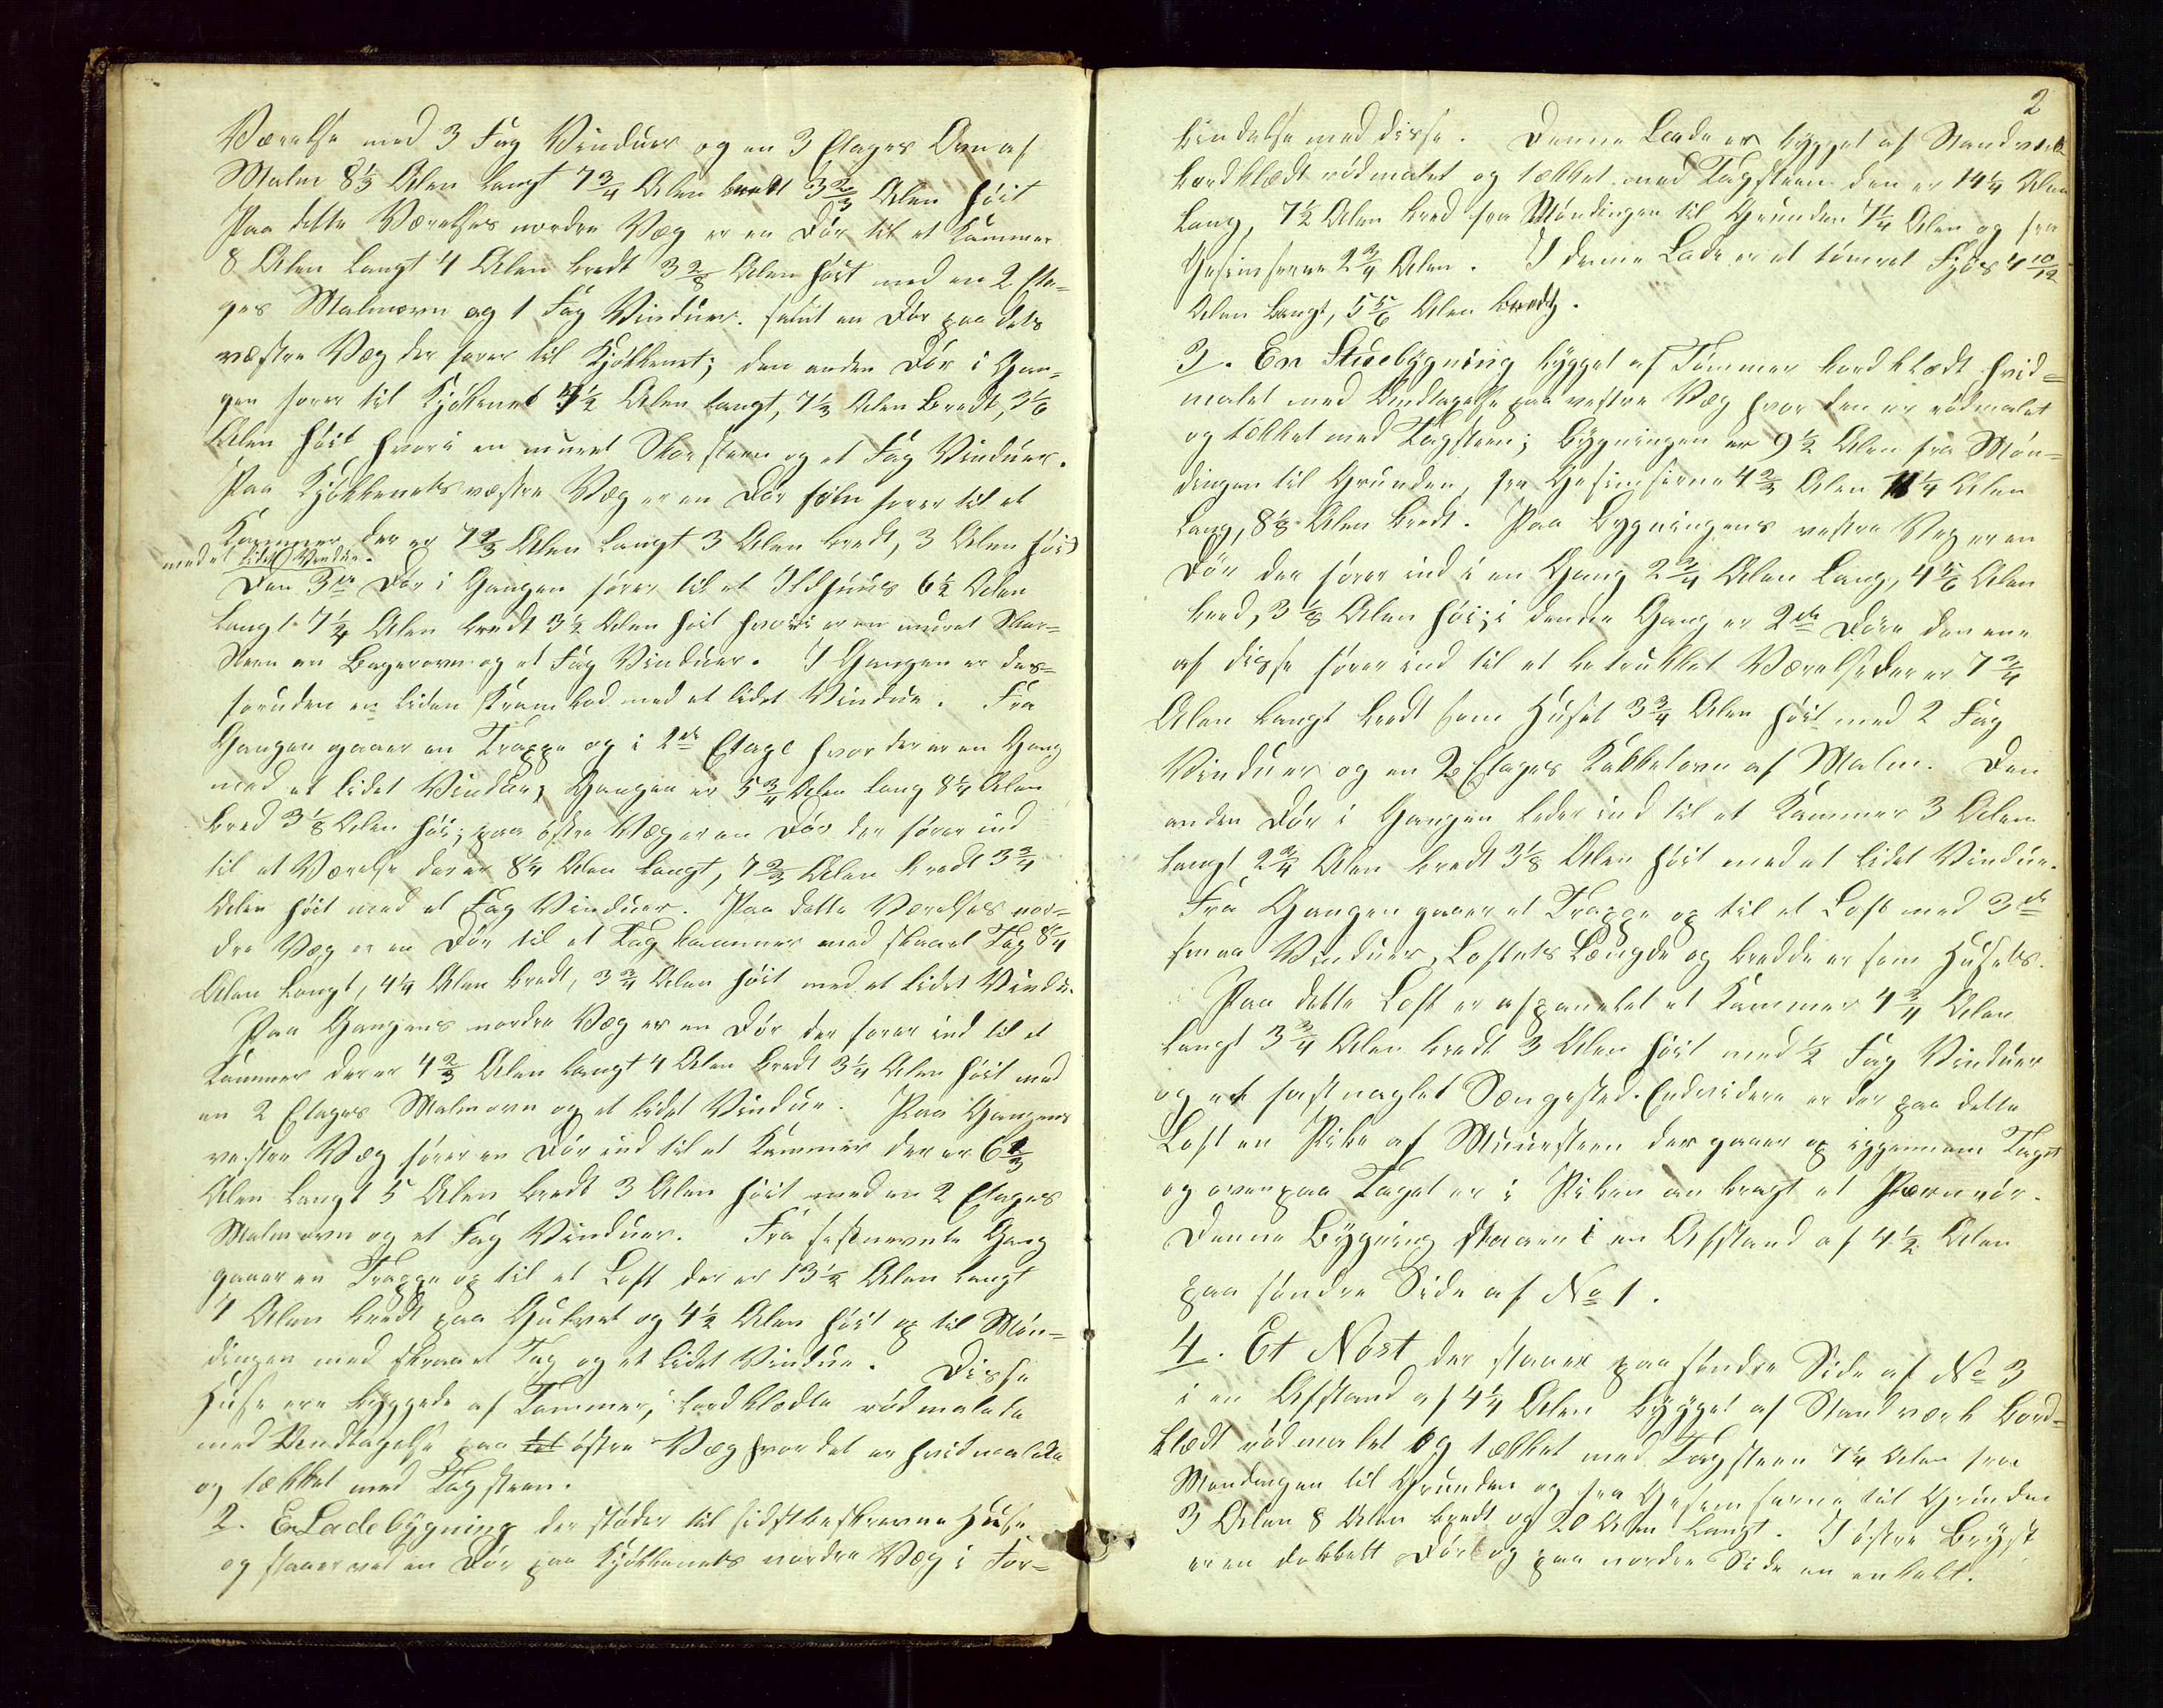 Værelse med 3 Fag Vinduer og en 3 Etages Ovn af
Malm 8 1/3 Alen langt 7 3/4 Alen bredt 3 2/3 Alen høit
Paa dette Værelses nordre Væg er en Dör til et Kammer
8 Alen langt 4 Alen bredt 3 2/8 Alen høit med en 2 Eta=
ges Malmovn og 1 Fag Vinduer. samt en Dör paa dets
væstre Væg der fører til Kjökkenet; den anden Dör i Gan=
gen fører til Kjökkenet 1/2 Alen langt, 7 1/3 Alen bredt, 3 1/6
Alen höit hvori en muret Skorsteen og et Fag Vinduer.
Paa Kjökkenets væstre Væg er en Dör som fører til et
Kammer der er 7 2/3 Alen langt 3 Alen bredt, 3 Alen höit
med et lidet Vindue.
Den 3die Dör i Gangen förer til et Ildhuus 6 1/2 Alen
langt 7 1/4 Alen bredt 3 1/2 Alen höit hvori er en muret Skor=
steen en Bagerovn og et Fag Vinduer. I Gangen er des=
foruden en liden Krambod med et lidet Vindue. Fra
Gangen gaaer en Trappe op i 2den Etage hvor der er en Gang
med et lidet Vindue, Gangen er 5 3/4 Alen lang 8 1/4 Alen
bred 3 1/8 Alen höi; paa östre Væg er en Dör der förer ind
til et Værelse der er 8 1/4 Alen langt, 7 2/3 Alen bredt 3 3/4
Alen höit med et Fag Vinduer. Paa dette Værelses nor=
dre Væg er en Dör til et Tagkammer med skraat Tag 8 1/4
Alen langt, 4 1/4 Alen bredt, 3 3/4 Alen höit med et lidet Vindu.
Paa Gangens nordre Væg er en Dör der förer ind til et
Kammer der er 4 2/3 Alen langt 4 Alen bredt 3 1/4 Alen höit med
en 2 Etages Malmovn og et lidet Vindue. Paa Gangens
vestre Væg förer en Dör ind til et Kammer der er 6
Alen langt 5 Alen bredt 3 Alen höit med en 2 Etages
Malmovn og et Fag Vinduer. Fra sistnevnte Gang
gaaer en Trappe op til et Loft der er 13 1/2 Alen langt
7 Alen bredt paa Gulvet og 4 1/2 Alen höit op til Mön=
dingen med skraaet Tag og et lidet Vindue. Disse
Huse ere byggede af Tømmer, bordklædte rödmalede
med Undtagelse paa östre Væg hvor det er hvidmalede
og tækket med Tagsteen.
2. En Ladebygning der stöder til sidstbeskrevne Huse
og staaer ved en Dör paa Kjökkenets nordre Væg i For=
2
bindelse med disse. Denne Lade er bygget af Standværk
bordklædt rödmalet og tækket med Tagsteen den er 14 1/4 Alen
lang, 7 1/2 Alen bred fra Möndingen til Grunden 7 1/4 Alen og fra
Gesimserne 2 3/4 Alen. I denne Lade er et tömret Fjös 4 10/12
Alen langt, 5 5/6 Alen bredt.
3. En Stuebygning bygget af Tømmer bordklædt hvid=
malet med Undtagelse paa vestre Væg hvor den er rödmalet
og tækket med Tagsteen; bygningen er 9 1/2 Alen fra Mön=
dingen til Grunden, fra Gesimserne 4 2/3 Alen 11 1/4 Alen
lang, 8 1/8 Alen bredt. Paa bygningens vestre Veg er en
Dör der förer ind i en Gang 2 3/4 Alen lang, 4 5/6 Alen
bred, 3 1/8 Alen höi; i denne Gang er 2de Döre den ene
af disse förer ind til et betrukket Værelse der er 7 3/4
Alen langt bredt som Huset 3 3/4 Alen höit med 2 Fag
Vinduer og en 2 Etages Kakkelovn af Malm. Den
anden Dör i Gangen leder ind til et Kammer 3 Alen
langt 2 3/4 Alen bredt 3 1/8 Alen höit med et lidet Vindue.
Fra Gangen gaaer et Trappe op til et Loft med 3de
smaa Vinduer, Loftets Længde og bredde er som Husets.
Paa dette Loft er afpanelet et Kammer 4 3/4 Alen
langt 3 3/4 Alen bredt 3 Alen höit med 1/2 Fag Vinduer
og et fastnaglet Sængested. Endvidere er der paa dette
Loft en Pibe af Muursteen der gaaer op igjennem Taget
og ovenpaa Taget er i Piben anbragt et Jærnrör.
Denne Bygning staaer i en Afstand af 4 1/2 Alen
paa söndre Side af No 1.
4. Et Nöst der staaer paa söndre Side af No 3
i en Afstand af 4 1/4 Alen bygget af Standværk bord=
klædt rödmalet og tækket med Tagsteen 7 1/4 Alen fra
Möndingen til Grunden og fra Gesimserne til Grunden
3 Alen 8 Alen bredt og 20 Alen langt. I östre Bryst
er en dobbelt Dör og paa nordre Side en enkelt.